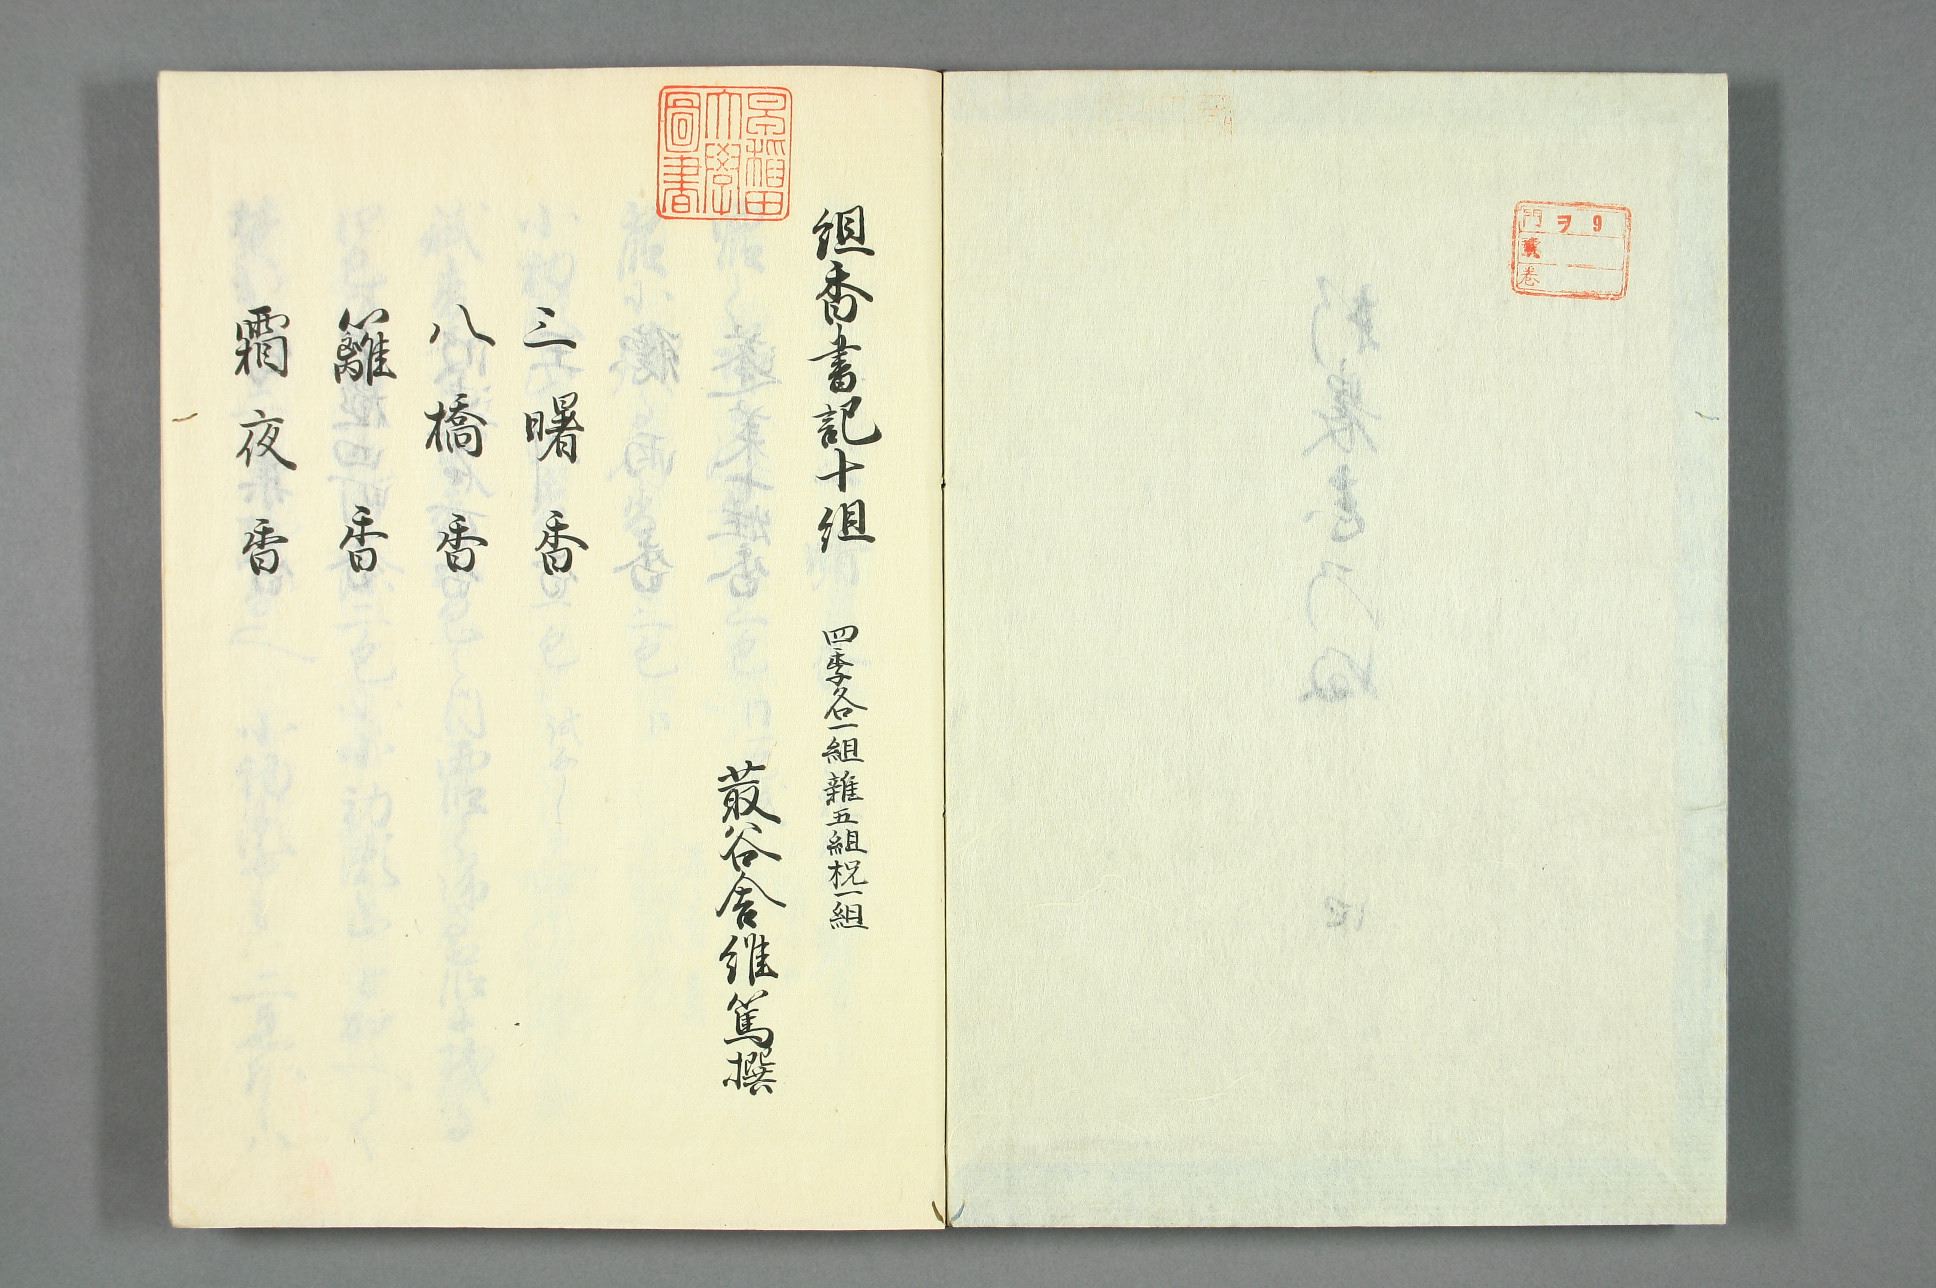 門 ヲ 9
號
卷
早稲田
大學
圖書
組香書記十組 四季各一組雑五組祝一組
菽谷舎維篤撰
三曙香
八橋香
籬香
霜夜香